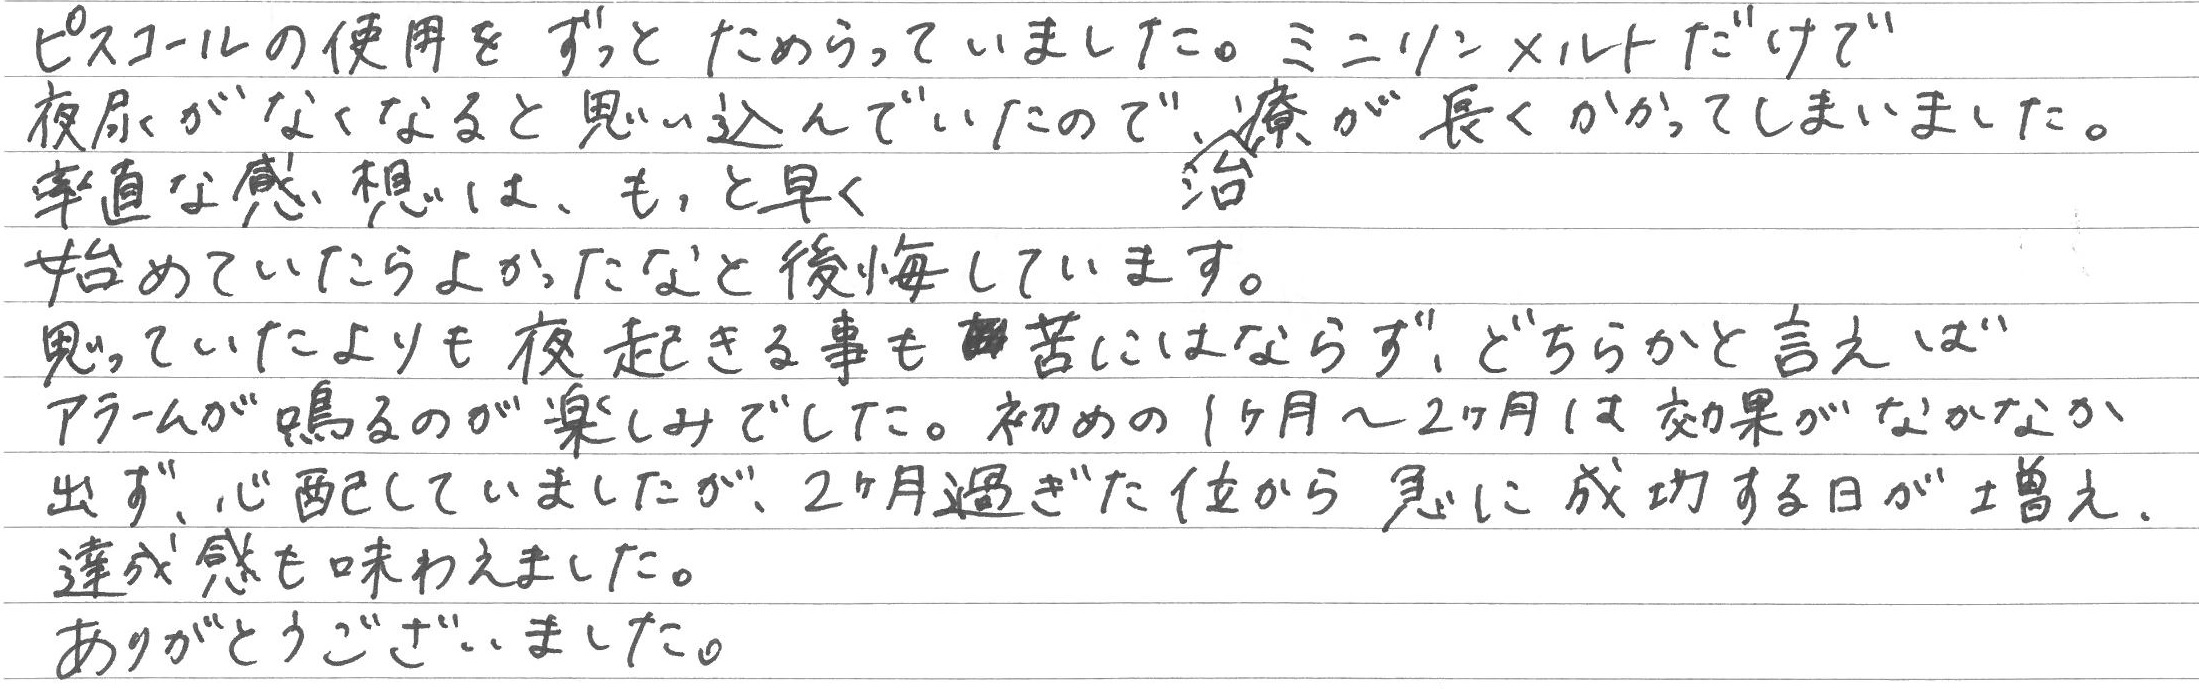 ピスコールの使用を ずっと ためらっていました。ミニリンメルトだけで
夜尿がなくなると思い込んでいたので、治療が長くかかってしまいました。
率直な感想は、もっと早く
始めていたらよかったなと後悔しています。
思っていたよりも夜起きる事も苦にはならず、どちらかと言えば
アラームが鳴るのが楽しみでした。初めの1ヶ月〜2ヶ月は効果がなかなか
出ず、心配していましたが、2ヶ月過ぎた位から急に成功する日が増え、
達成感も味わえました。
ありがとうございました。